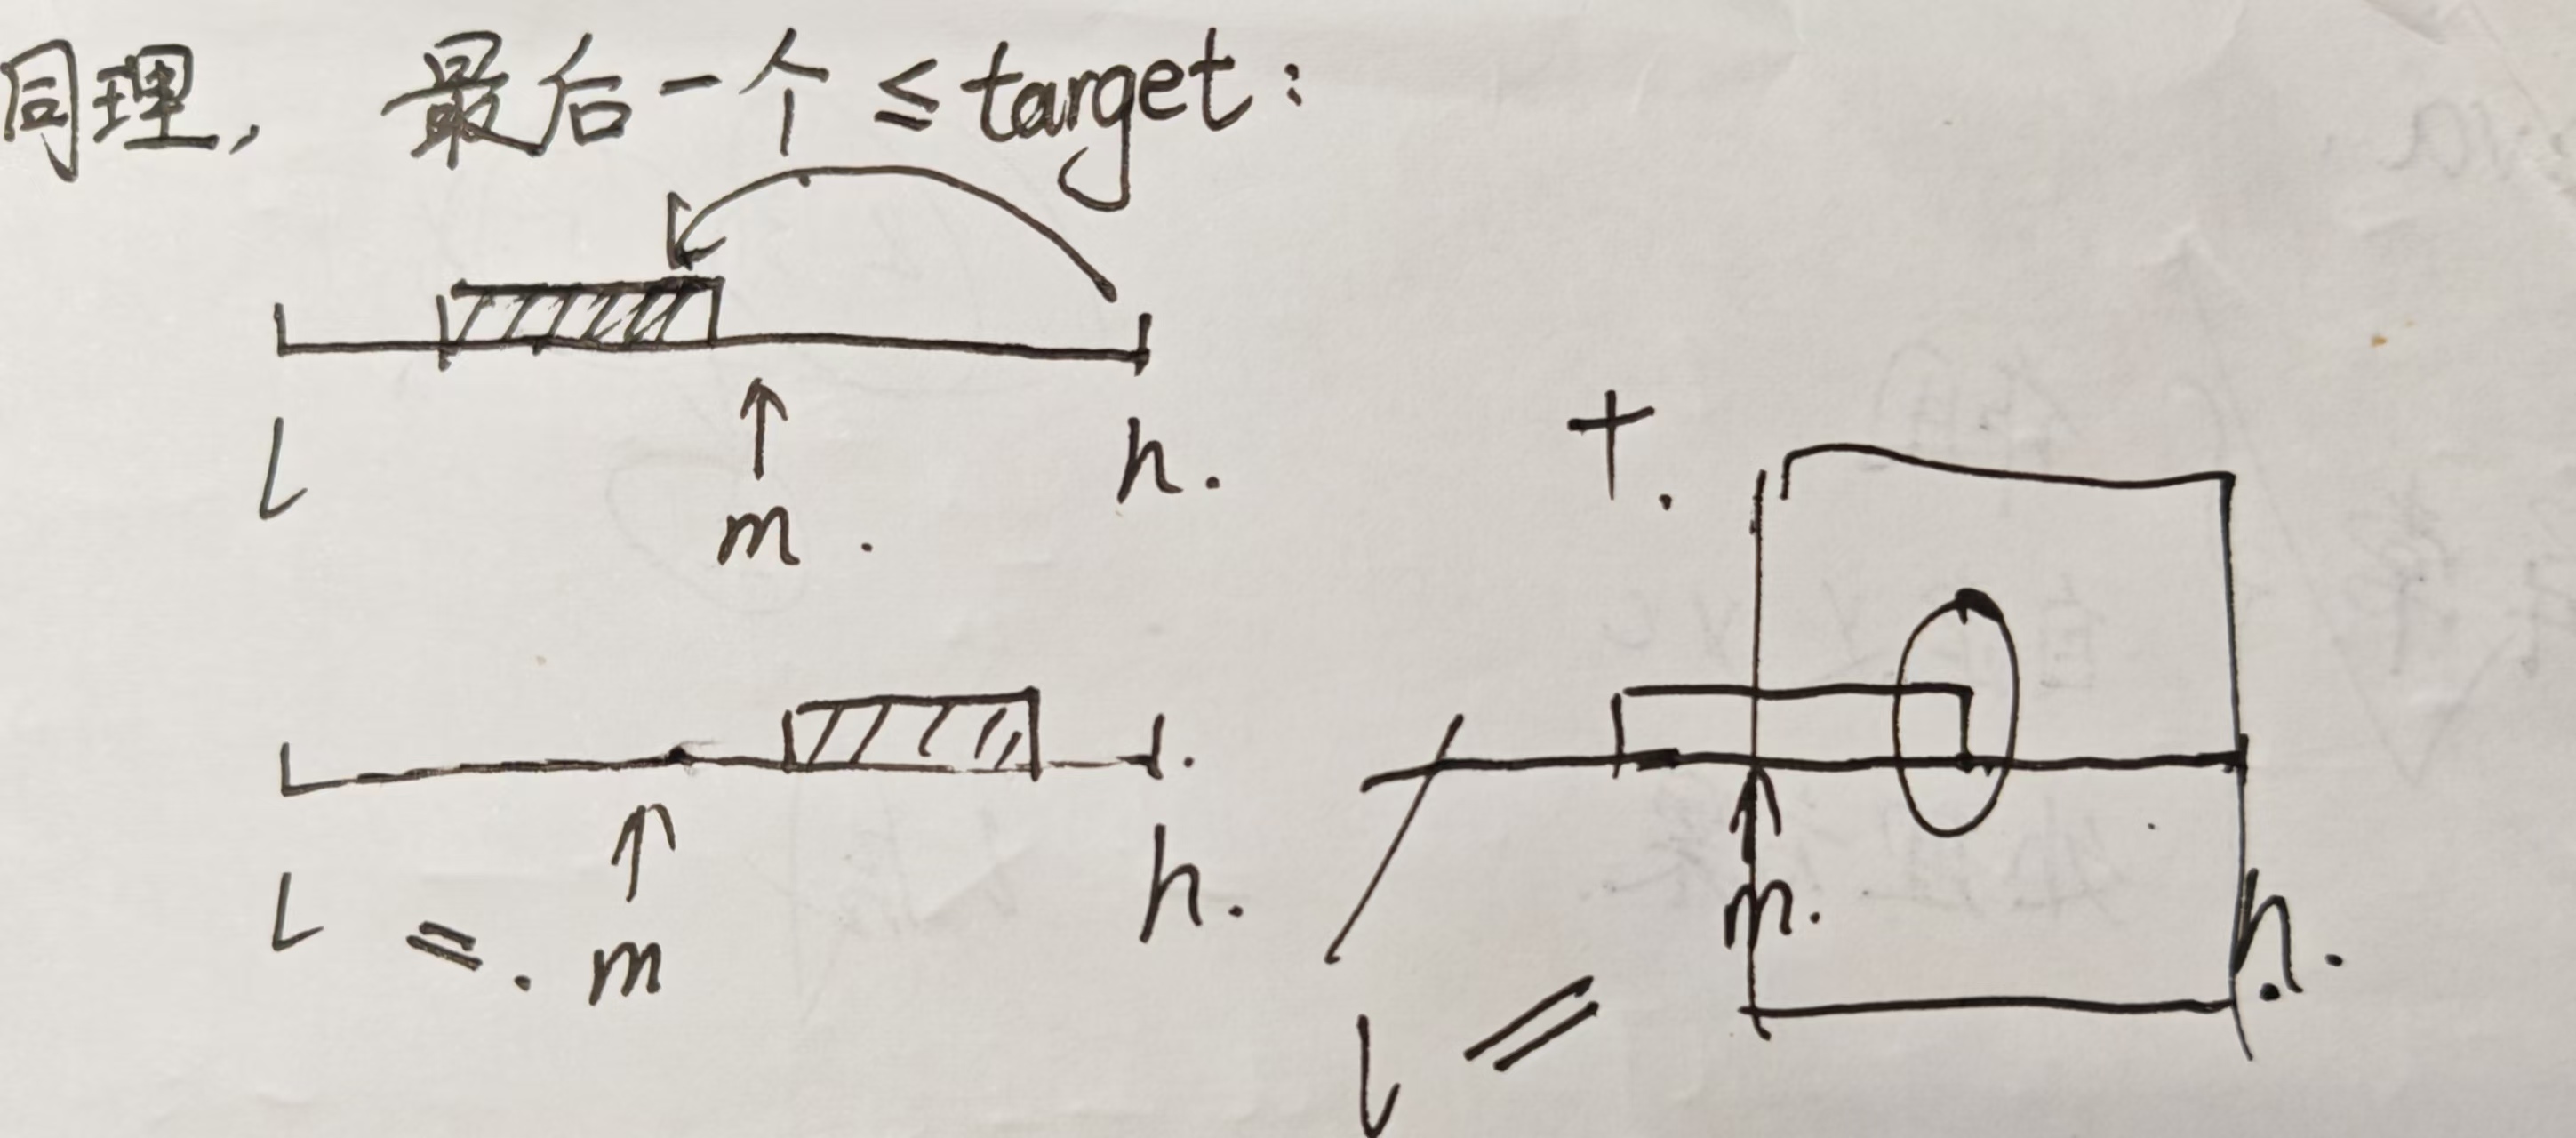 同理, 最后一个 ≤ target:
l m. h.
l =. m h.
t.
m. h.
l =